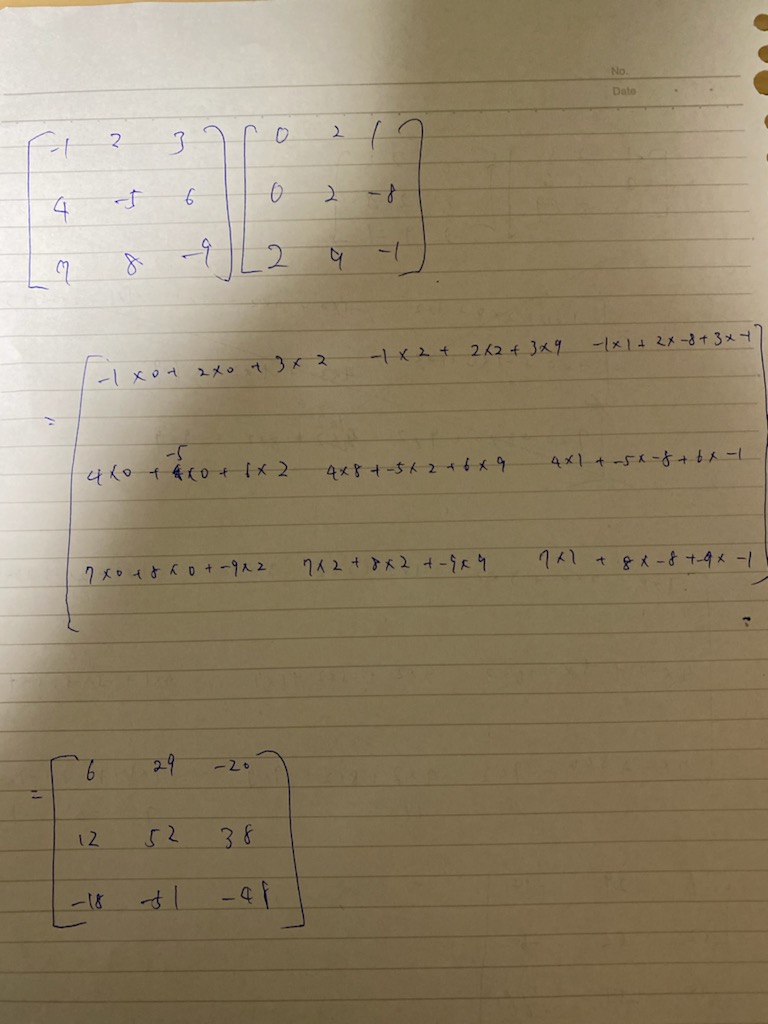 No.
Date
-1 2 3 0 2 1
4 -5 6 0 2 -8
7 8 -9 2 9 -1
= -1×0+ 2×0 + 3×2 -1×2+ 2×2+3×9 -1×1+ 2×-8+3×-1
-5
4×0 + ×0+ 6×2 4×8+-5×2+6×9 4×1+-5×-8+6×-1
7×0+8×0+-9×2 7×2+8×2+-9×9 7×1 + 8×-8+-9×-1
= 6 29 -20
12 52 38
-18 -51 -48